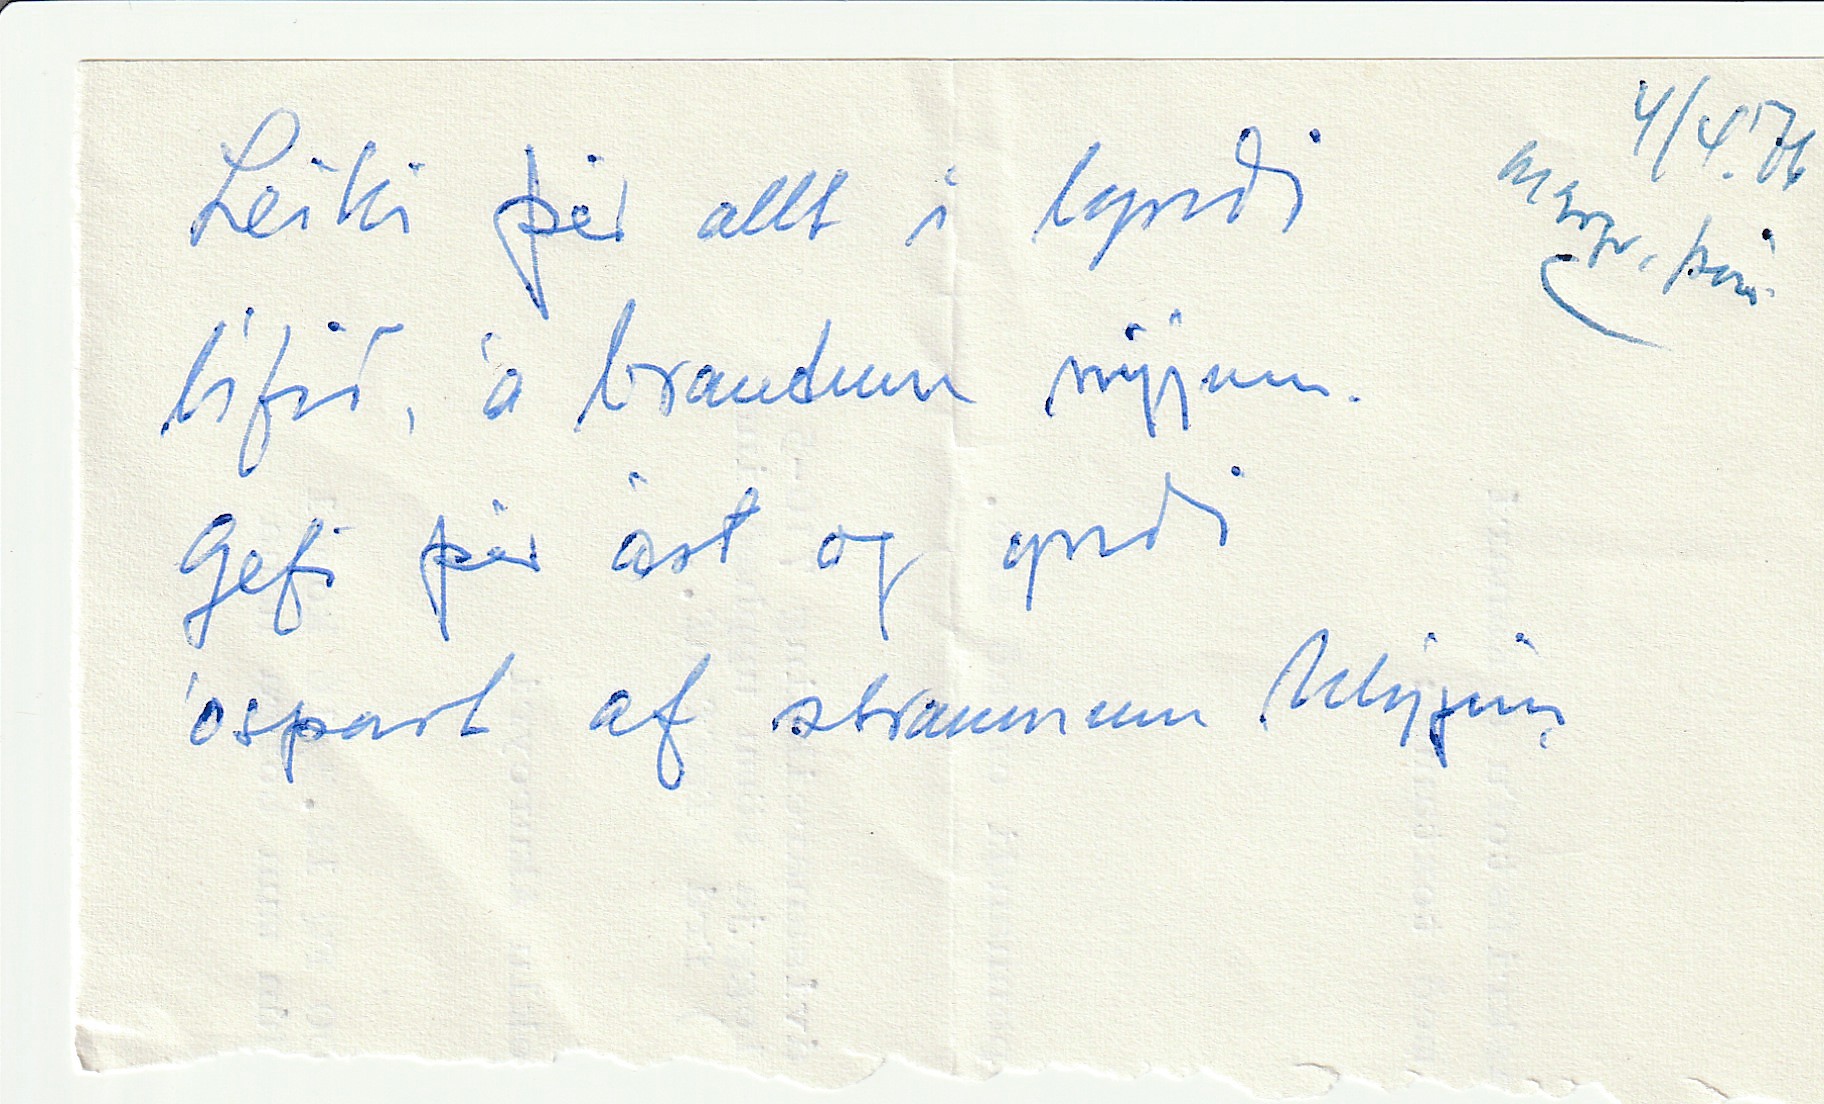 4/4.'76
Leiki þér allt í lyndi
lífið, á brautum nýjum.
Gefi þér ást og yndi
óspart af straumum hlýjum.